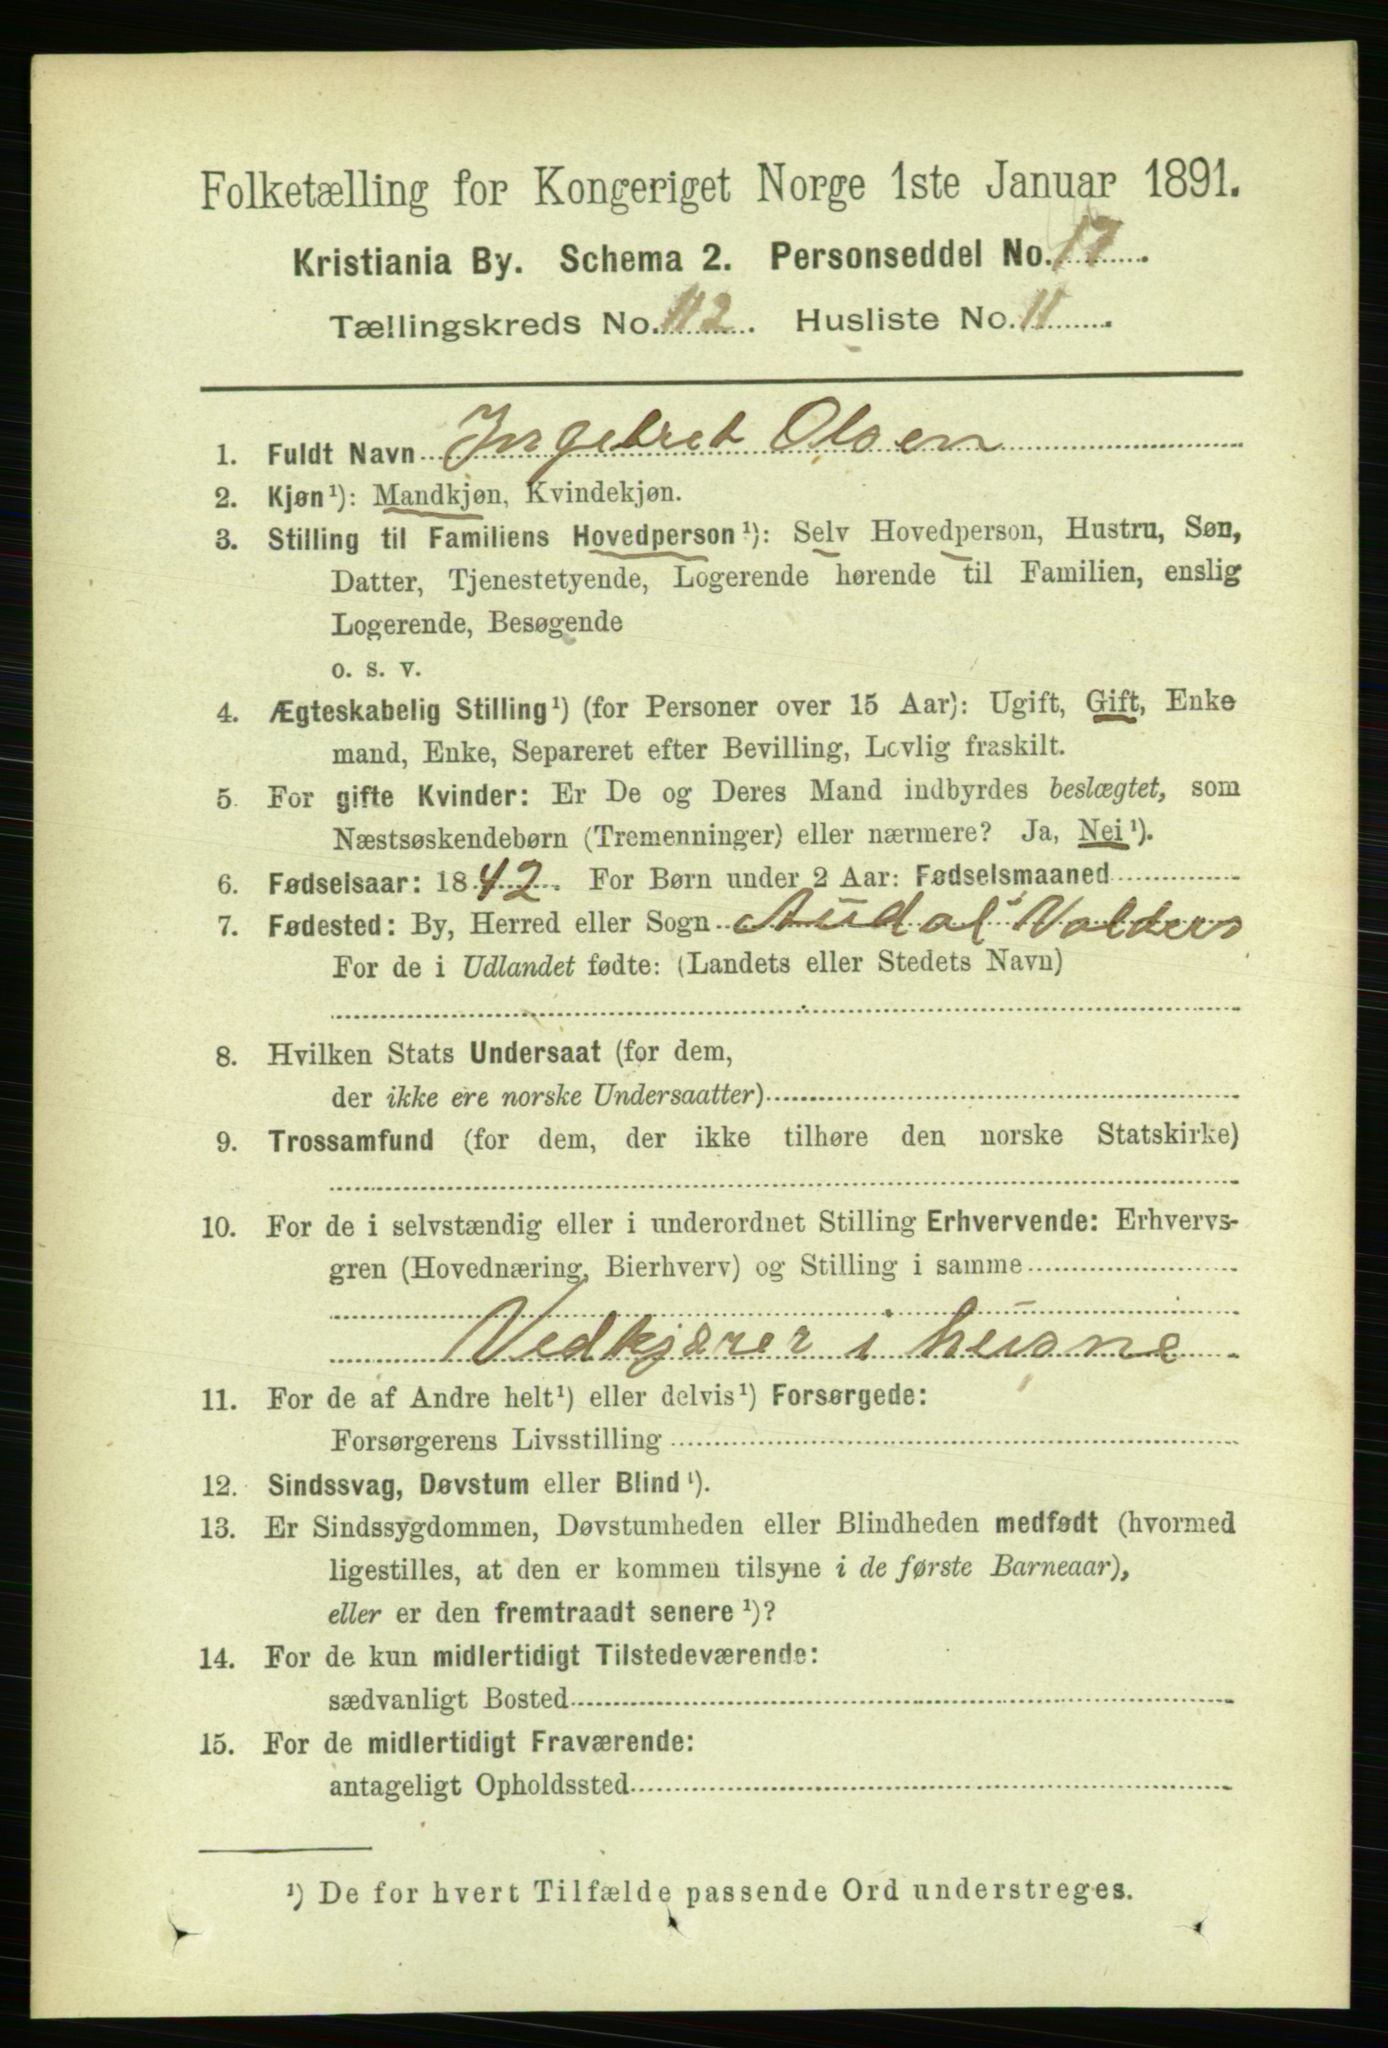 Folketælling for Kongeriget Norge 1ste Januar 1891.
Kristiania By. Schema 2. Personseddel No. 17.
Tællingskreds No. 112. Husliste No. 11.
1. Fuldt Navn Ingebret Olsen
2. Kjøn¹): Mandkjøn, Kvindekjøn.
3. Stilling til Familiens Hovedperson¹): Selv Hovedperson, Hustru, Søn,
Datter, Tjenestetyende, Logerende hørende til Familien, enslig
Logerende, Besøgende
o. s. v.
4. Ægteskabelig Stilling¹) (for Personer over 15 Aar): Ugift, Gift, Enke
mand, Enke, Separeret efter Bevilling, Lovlig fraskilt.
5. For gifte Kvinder: Er De og Deres Mand indbyrdes beslægtet, som
Næstsøskendebørn (Tremenninger) eller nærmere? Ja, Nei¹).
6. Fødselsaar: 1842. For Børn under 2 Aar: Fødselsmaaned
7. Fødested: By, Herred eller Sogn Audal Valders
For de i Udlandet fødte: (Landets eller Stedets Navn)
8. Hvilken Stats Undersaat (for dem,
der ikke ere norske Undersaatter)
9. Trossamfund (for dem, der ikke tilhøre den norske Statskirke)
10. For de i selvstændig eller i underordnet Stilling Erhvervende: Erhvervs-
gren (Hovednæring, Bierhverv) og Stilling i samme
Vedkjærer i husne
11. For de af Andre helt¹) eller delvis¹) Forsørgede:
Forsørgerens Livsstilling
12. Sindssvag, Døvstum eller Blind¹).
13. Er Sindssygdommen, Døvstumheden eller Blindheden medfødt (hvormed
ligestilles, at den er kommen tilsyne i de første Barneaar),
eller er den fremtraadt senere¹)?
14. For de kun midlertidigt Tilstedeværende:
sædvanligt Bosted
15. For de midlertidigt Fraværende:
antageligt Opholdssted
¹) De for hvert Tilfælde passende Ord understreges.